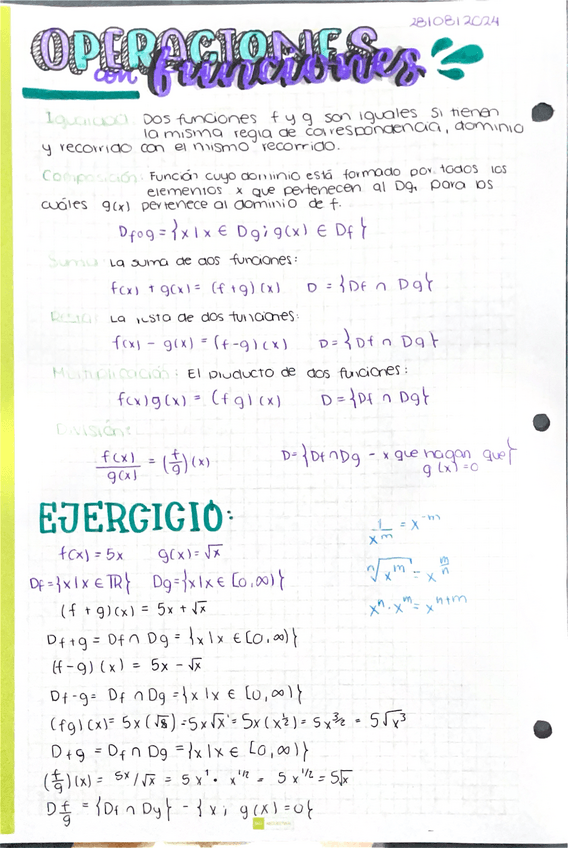 28/08/2024
OPERACIONES
con funciones
Igualdad: Dos funciones f y g son iguales si tienen
la misma regla de correspondencia, dominio
y recorrido con el mismo recorrido.
Composición: Función cuyo dominio está formado por todos los
elementos x que pertenecen al Dg, para los
cuáles g(x) pertenece al dominio de f.
Dfog = {x | x ∈ Dg ; g(x) ∈ Df}
Suma: La suma de dos funciones:
f(x) + g(x) = (f+g)(x) D = {Df ∩ Dg}
Resta: La resta de dos funciones:
f(x) - g(x) = (f-g)(x) D = {Df ∩ Dg}
Multiplicación: El producto de dos funciones:
f(x)g(x) = (fg)(x) D = {Df ∩ Dg}
División:
f(x)/g(x) = (f/g)(x) D = {Df ∩ Dg - x que hagan que}
g(x)=0
EJERCICIO:
1/x^m = x^-m
f(x) = 5x g(x) = √x
ⁿ√x^m = x^m/n
Df = {x | x ∈ ℝ} Dg = {x | x ∈ [0,∞)}
x^n · x^m = x^n+m
(f+g)(x) = 5x + √x
Df+g = Df ∩ Dg = {x | x ∈ [0,∞)}
(f-g)(x) = 5x - √x
Df-g = Df ∩ Dg = {x | x ∈ [0,∞)}
(fg)(x) = 5x(√x) = 5x√x = 5x(x^1/2) = 5x^3/2 = 5√x³
D+g = Df ∩ Dg = {x | x ∈ [0,∞)}
(f/g)(x) = 5x/√x = 5x¹ · x^-1/2 = 5x^1/2 = 5√x
D f/g = {Df ∩ Dg} - {x ; g(x)=0}